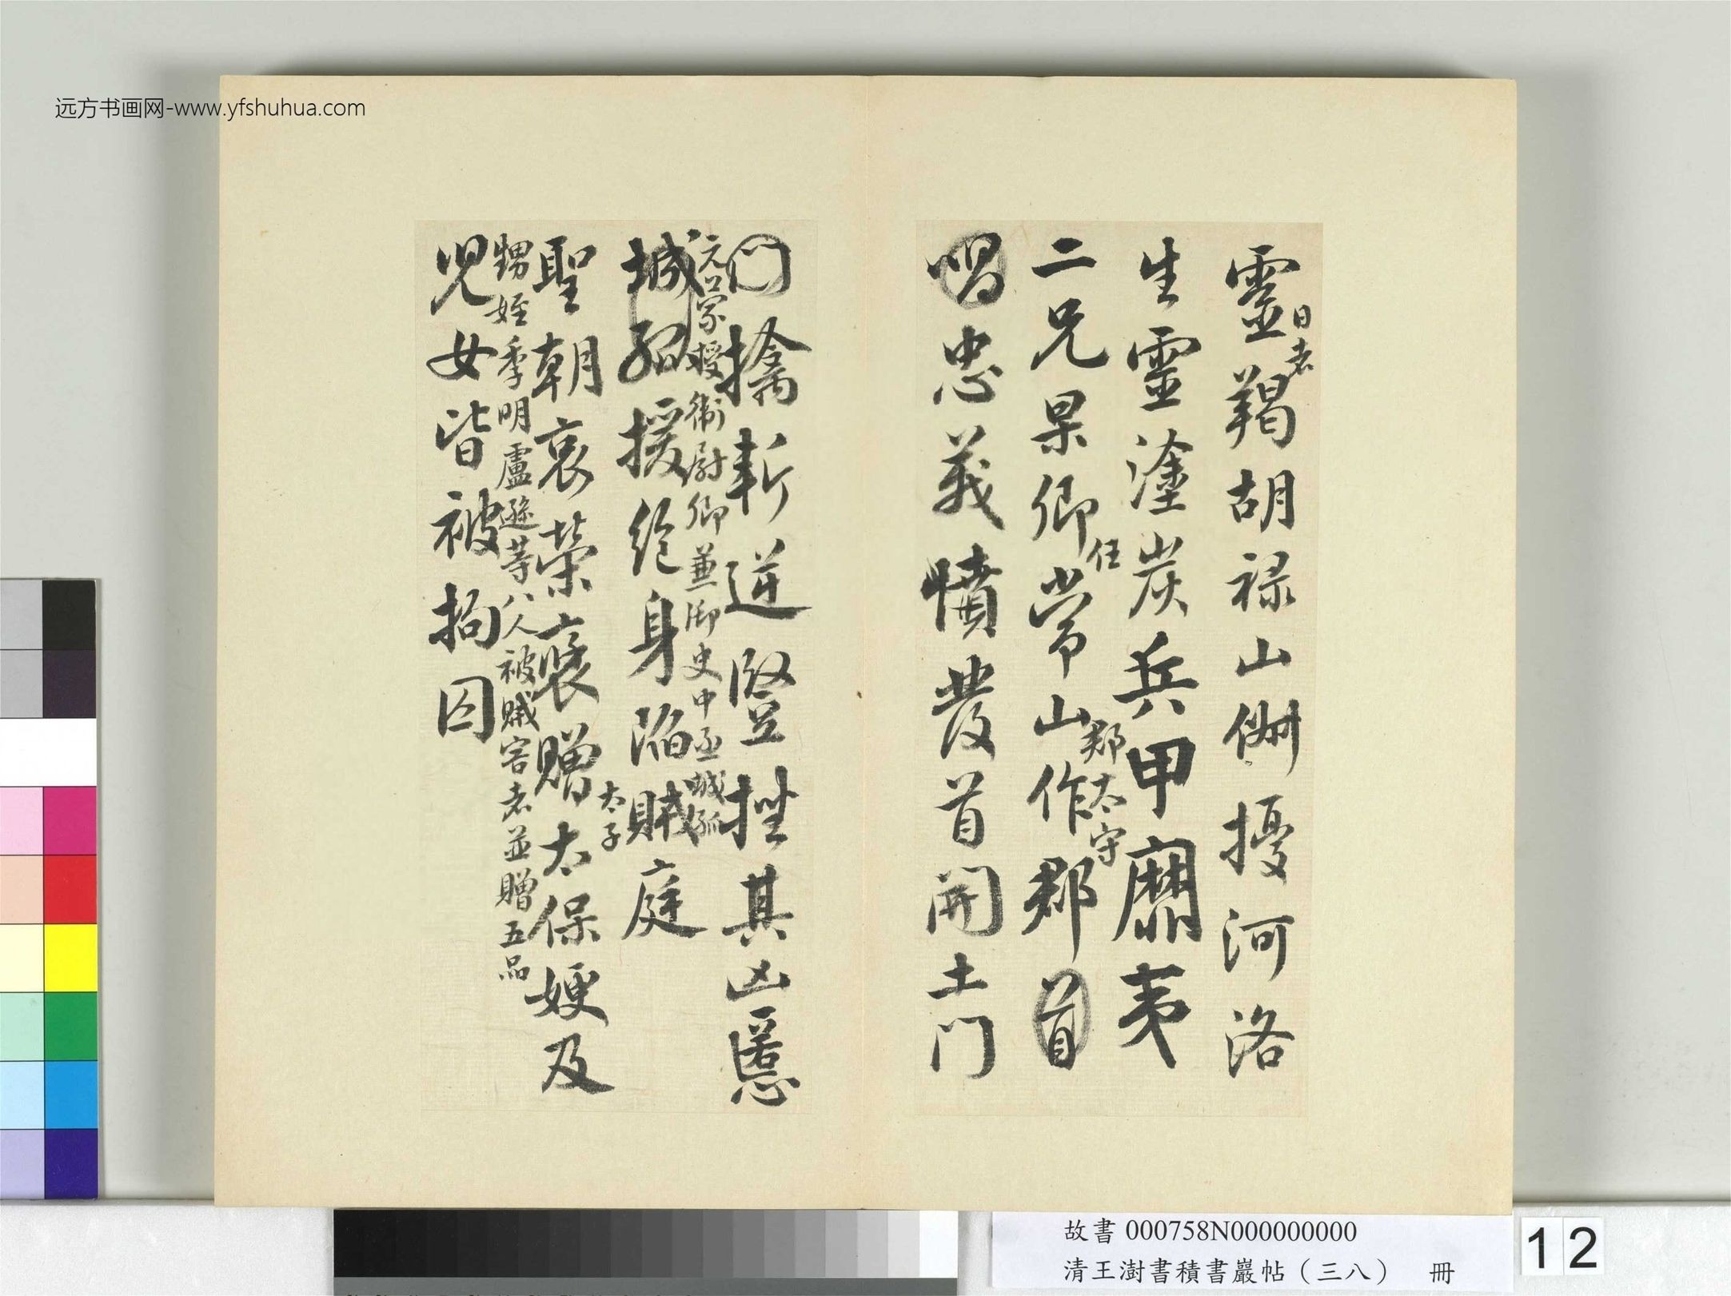 远方书画网-www.yfshuhua.com
靈日者羯胡禄山俶擾河洛
生靈塗炭兵甲靡夷
二兄杲卿任常山郡太守作郡首
唱忠義憤發首開土门
门擒斬逆竪挫其凶慝
元蒙授衛尉卿兼御史中丞城孤
城孤援絶身陷賊庭
聖朝哀榮褒贈太子太保嫂及
甥姪季明盧逖等八人被贼害者並贈五品
児女皆被拘囚
故書 000758N000000000
清王澍書積書巖帖（三八） 冊
12